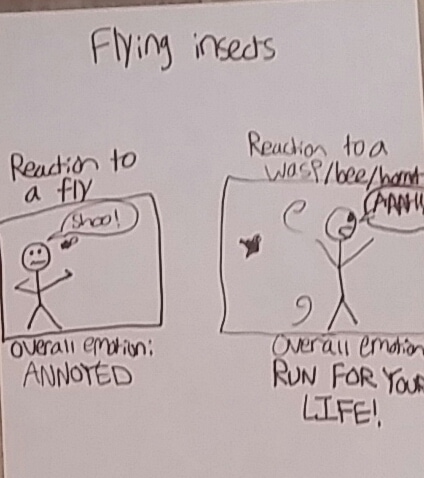 Flying insects
Reaction to
a fly
Shoo!
Overall emotion:
ANNOYED
Reaction to a
wasp/bee/hornt
AAAH
Overall emotion
RUN FOR YOUR
LIFE!